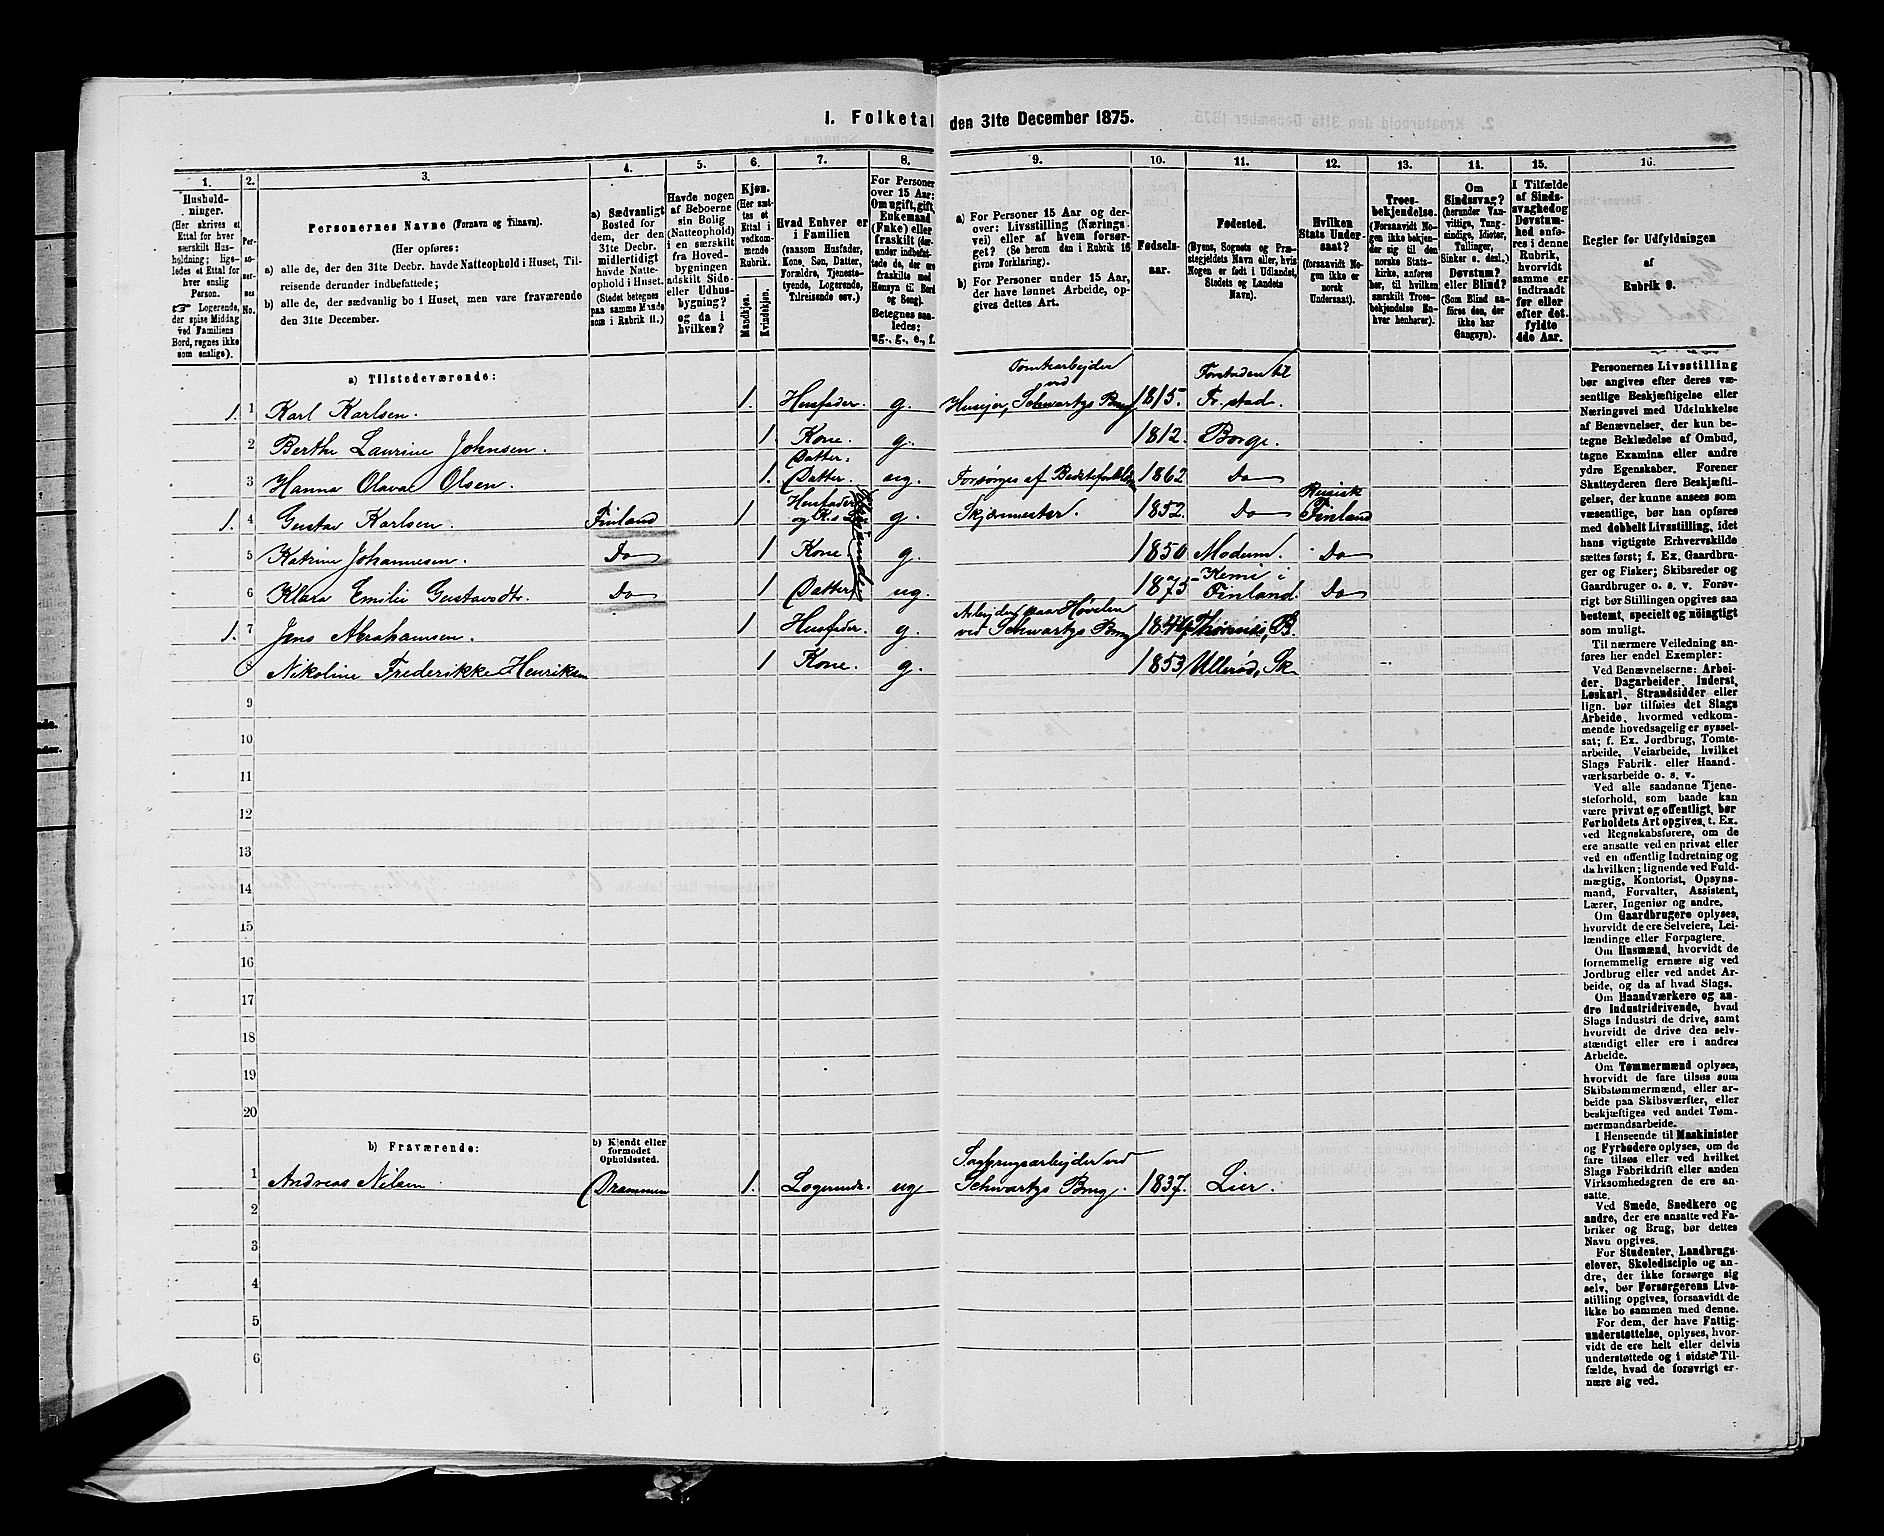 1. Folketal den 31te December 1875.
1. 2. 3. 4. 5. 6. 7. 8. 9. 10. 11. 12. 13. 14. 15. 16.
Hushold-
ninger.
(Her skrives et
Ettal for hver
særskilt Hus-
holdning; lige-
ledes et Ettal for
hver enslig
Person.
☞ Logerende,
der spise Middag
ved Familiens
Bord, regnes ikke
som enslige).
Per-
so-
ner-
ses
No.
Personernes Navne (Fornavn og Tilnavn).
(Her opføres:
a) alle de, der den 31te Decbr. havde Natteophold i Huset, Til-
reisende derunder indbefattede;
b) alle de, der sædvanlig bo i Huset, men vare fraværende
den 31te December.
a) Sædvanligt
Bosted for
dem, der den
31te Decbr.
midlertidigt
havde Natte-
ophold i Huset.
(Stedet betegnes
paa samme Maade
som i Rubrik 11.)
Havde nogen
af Beboerne
sin Bolig
(Natteophold)
i en særskilt
fra Hoved-
bygningen
adskilt Side-
eller Udhus-
bygning?
og da i
hvilken?
Kjøn.
(Her sæt-
tes et
Ettal i
vedkom-
mende
Rubrik.)
Mandkjøn.
Kvindekjøn.
Hvad Enhver er
i Familien
(saasom Husfader,
Kone, Søn, Datter,
Forældre, Tjeneste-
tyende, Logerende,
Tilreisende osv.)
For Personer
over 15 Aar:
Om ugift, gift,
Enkemand
(Enke) eller
fraskilt (der-
under indbefat-
tede de, der ere
fraskilte med
Hensyn til Bord
og Seng).
Betegnes saa-
ledes:
ug., g., e., f.
a) For Personer 15 Aar og der-
over: Livsstilling (Nærings-
vei) eller af hvem forsør-
get? (Se herom den i Rubrik 16
givne Forklaring).
b) For Personer under 15 Aar,
der have lønnet Arbeide, op-
gives dettes Art.
Fødsels-
aar.
Fødested.
(Byens, Sognets og Præ-
stegjeldets Navn eller, hvis
Nogen er født i Udlandet,
Stedets og Landets
Navn).
Hvilken
Stats Under-
saat?
(forsaavidt No-
gen ikke er
norsk
Undersaat).
Troes-
bekjendelse.
(Forsaavidt No-
gen ikke bekjen-
der sig til den
norske Stats-
kirke, anføres
her, til hvilken
særskilt Troes-
bekjendelse En-
hver henhører).
Om
Sindssvag?
(herunder Van-
vittige, Tung-
sindige, Idioter,
Tullinger,
Sinker o. desl.,)
Døvstum?
eller Blind?
(Som Blind an-
føres den, der
ikke har
Gangsyn).
I Tilfælde
af Sinds-
svaghed og
Døvstum-
hed anfø-
res i denne
Rubrik,
hvorvidt
samme er
indtraadt
før eller
efter det
fyldte
4de Aar.
Regler for Udfyldningen
af
Rubrik 9.
a) Tilstedeværende:
1. 1 Karl Karlsen. 1. Husfader. g. Husejer, Tomtearbejder ved Schwartz's Brug 1815. Forstaden til Fr. stad.
2 Berthe Laurine Johnsen. 1. Kone. g. 1812. Borge.
3 Hanna Olava Olsen. 1. Datter. Datter. ug. Forsørges af Bedsteforældre 1862 Do
1. 4 Gustav Karlsen. Finland 1 Husfader og K. s Søn Besøgende g. Skjærmester. 1852. Do Rusisk Finland
5 Katrine Johannesen. Do 1 Kone. g. 1850 Modum. Do
6 Klara Emilie Gustavsdtr. Do 1 Datter ug. 1875 Kemi i Finland. Do
1. 7 Jens Abrahamsen. 1 Husfader. g. Arbejder paa Høvelen ved Schwartz's Brug
8 Nikoline Frederikke Henriksen 1 Kone. g. 1853 Ullerød, Sk
9
10
11
12
13
14
15
16
17
18
19
20
b) Fraværende:
b) Kjendt eller
formodet
Opholdssted.
1 Andreas Nilsen Drammen 1. Logerende. ug Sagbrugsarbejder ved Schwartz's Brug. 1837. Lier.
2
3
4
5
6
Personernes Livsstilling
bør angives efter deres væ-
sentlige Beskjæftigelse eller
Næringsvei med Udelukkelse
af Benævnelser, der kun be-
tegne Beklædelse af Ombud,
tagne Examina eller andre
ydre Egenskaber. Forener
Skatteyderen flere Beskjæfti-
gelser, der kunne ansees som
væsentlige, bør han opføres
med dobbelt Livsstilling, idet
hans vigtigste Erhvervskilde
sættes først; f. Ex. Gaardbru-
ger og Fisker; Skibsreder og
Gaardbruger o. s. v. Forøv-
rigt bør Stillingen opgives saa
bestemt, specielt og nøiagtigt
som muligt.
Til nærmere Veiledning an-
føres her endel Exempler:
Ved Benævnelserne: Arbei-
der, Dagarbeider, Inderst,
Løskarl, Strandsidder eller
lign. bør tilføies det Slags
Arbeide, hvormed vedkom-
mende hovedsagelig er syssel-
sat; f. Ex. Jordbrug, Tomte-
arbeide, Veiarbeide, hvilket
Slags Fabrik- eller Haand-
værksarbeide o. s. v.
Ved alle saadanne Tjene-
steforhold, som baade kan
være privat og offentligt, bør
Forholdets Art opgives, t. Ex.
ved Regnskabsførere, om de
ere ansatte ved en privat eller
ved en offentlig Indretning og
da hvilken; lignende ved Fuld-
mægtig, Kontorist, Opsyns-
mand, Forvalter, Assistent,
Lærer, Ingeniør og andre.
Om Gaardbrugere oplyses,
hvorvidt de ere Selveiere, Lei-
lændinge eller Forpagtere.
Om Husmænd, hvorvidt de
fornemmelig ernære sig ved
Jordbrug eller ved andet Ar-
beide, og da af hvad Slags.
Om Haandværkere og an-
dre Industridrivende, hvad
Slags Industri de drive, samt
hvorvidt de drive den selv-
stændigt eller ere i andres
Arbeide.
Om Tømmermænd oplyses,
hvorvidt de fare tilsøs som
Skibstømmermænd, eller ar-
beide paa Skibsværfter, eller
beskjæftiges ved andet Tøm-
mermandsarbeide.
I Henseende til Maskinister
og Fyrbødere oplyses, om de
fare tilsøs eller ved hvilket
Slags Fabrikdrift eller anden
Virksomhedsgren de ere an-
satte.
Ved Smede, Snedkere og
andre, der ere ansatte ved Fa-
briker og Brug, bør dettes
Navn opgives.
For Studenter, Landbrugs-
elever, Skoledisciple og an-
dre, der ikke forsørge sig
selv, bør Forsørgerens Livs-
stilling opgives, forsaavidt de
ikke bo sammen med denne.
For dem, der have Fattig-
understøttelse, oplyses, hvor-
vidt de ere helt eller delvis
understøttede og i sidste Til-
fælde, hvad de forøvrigt er-
nære sig ved.